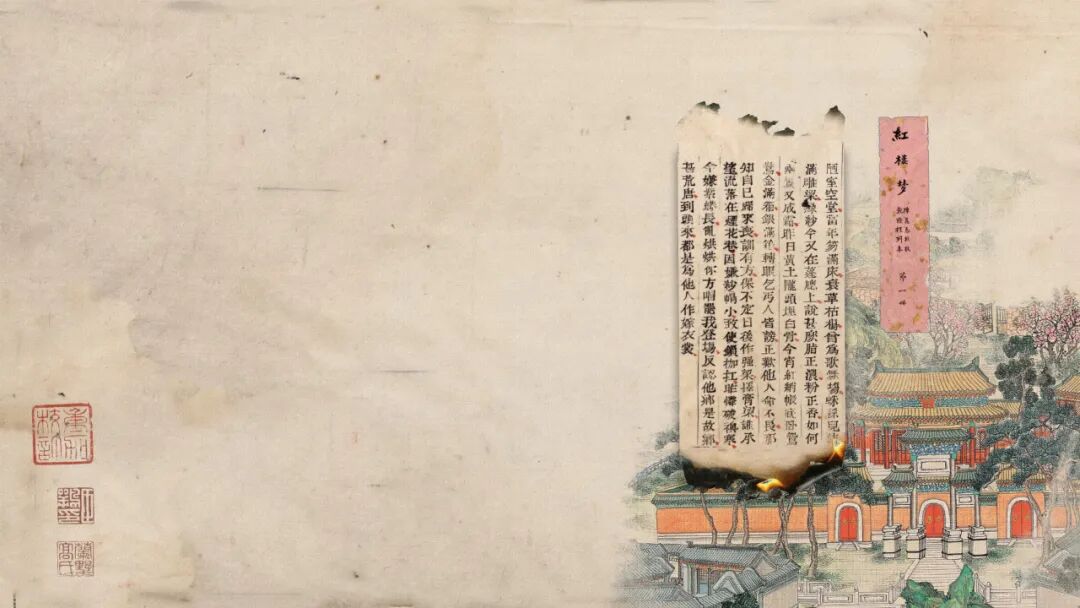 紅楼梦
第一
陋室空堂當年笏滿床衰草枯楊曾為歌舞場蛛絲兒
滿雕梁綠紗今又在蓬牕上說甚麼脂正濃粉正香如何
又成霜昨日黃土隴頭埋白骨今宵紅綃帳底卧鴛
鴦金滿箱銀滿箱轉眼乞丐人皆謗正歎他人命不長那
知自已歸來喪訓有方保不定日後作強梁擇膏粱誰承
望流落在煙花巷因嫌紗帽小致使鎖枷扛昨憐破襖寒
今嫌紫蟒長亂烘烘你方唱罷我登場反認他鄉是故鄉
甚荒唐到頭來都是為他人作嫁衣裳